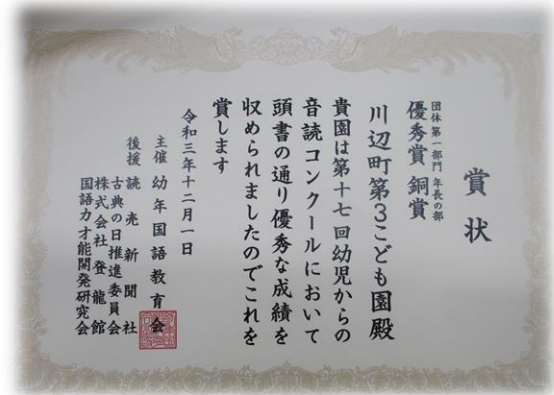 賞状
団体 第一部門 年長の部
優秀賞 銅賞
川辺町第3こども園殿
貴園は第十七回幼児からの
音読コンクールにおいて
頭書の通り優秀な成績を
収められましたのでこれを
賞します
令和三年十二月一日
主催 幼年国語教育会
後援 読売新聞社
古典の日推進委員会
株式会社登龍館
国語力才能開発研究会